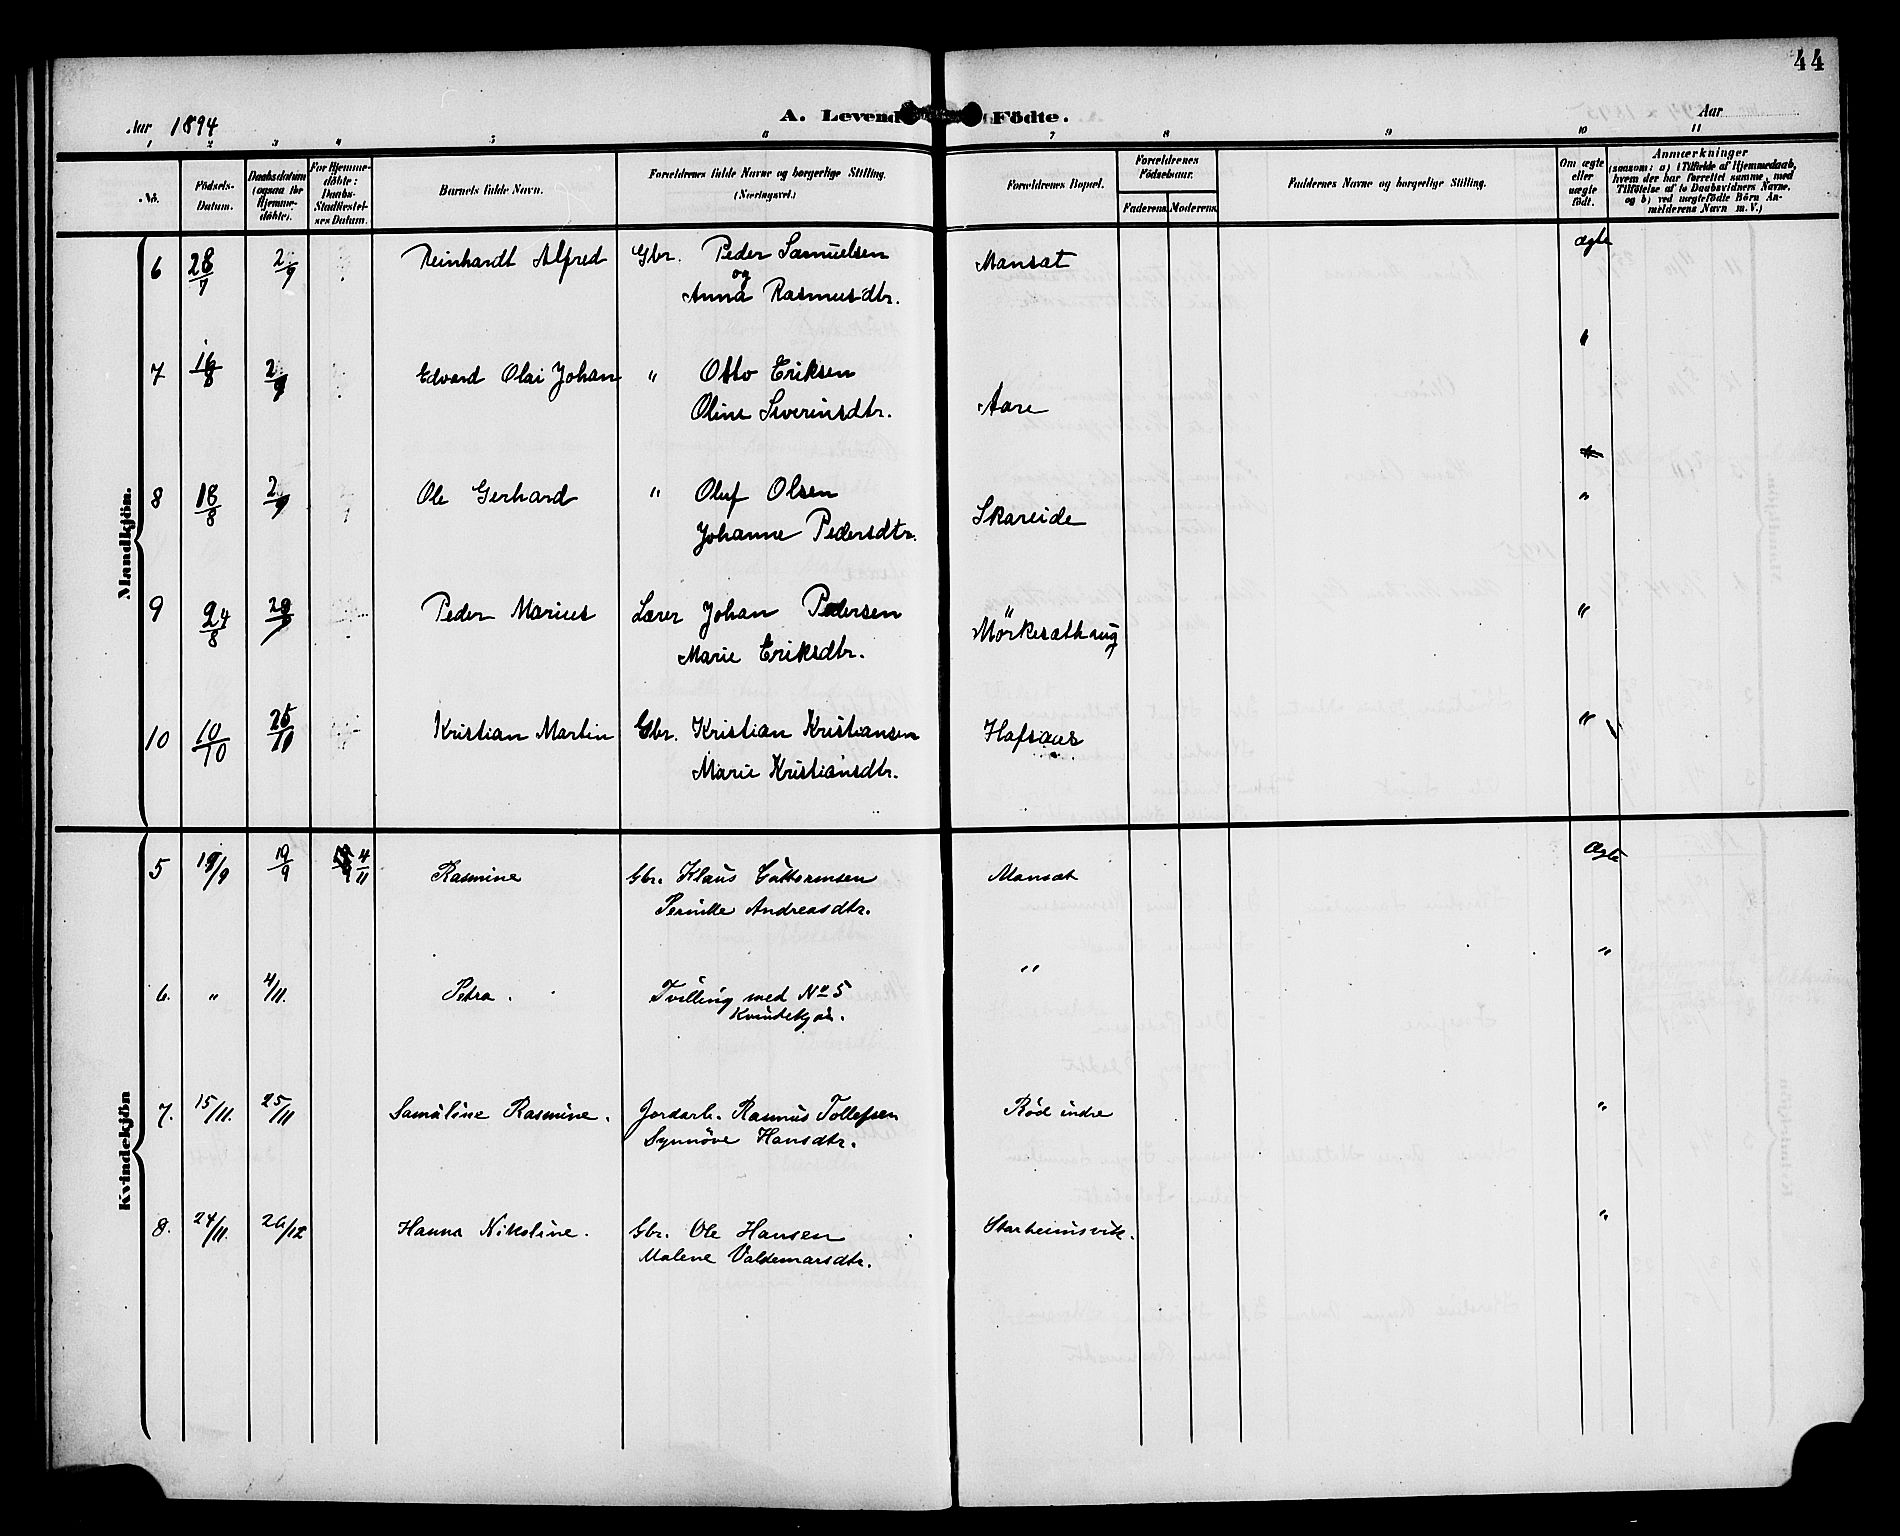 44
Aar 1894 A. Levende Födte. Aar
1 2 3 4 5 6 7 8 9 10 11
No. Födsels-Datum. Daabsdatum (ogsaa for Hjemmedöbte). For Hjemmedöbte: Daabs-Stadfæstelses Datum. Barnets fulde Navn. Forældrenes fulde Navne og borgerlige Stilling. (Næringsvei.) Forældrenes Bopæl. Forældrenes Födselsaar. Faderens. Moderens. Faddernes Navne og borgerlige Stilling. Om ægte eller uægte födt. Anmærkninger (saasom: a) i Tilfælde af Hjemmedaab, hvem der har forrettet samme, med Tilföielse af to Daabsvidners Navne, og b) ved uægtefödte Börn Anmelderens Navn m. V.)
Mandkjön.
6 28/7 2/9 Reinhardt Alfred Gbr. Peder Samuelsen Mansæt ægte
og
Anna Rasmusdtr.
7 16/8 2/9 Edvard Olai Johan " Otto Eriksen "
Oline Severinsdtr. Aare
8 18/8 2/9 Ole Gerhard " Oluf Olsen "
Johanne Pedersdtr. Skareide
9 24/8 Peder Marius Lærer Johan Pedersen Mörkesæthaug "
Marie Eriksdtr.
10 10/10 25/11 Kristian Martin Gbr. Kristian Kristiansen Hafsaas "
Marie Kristiansdtr.
Kvindekjön
5 19/9 4/11 Rasmine Gbr. Klaus Guttormsen Mansæt Ægte
Pernille Andreasdtr.
6. " 4/11. Petra. Tvilling med No 5 " "
Kvindekjön.
7. 15/11. 25/11 Samuline Rasmine. Jordarb. Rasmus Tollefsen Röd indre "
Synnöve Hansdtr.
8. 24/11. 26/12 Hanna Nikoline. Gbr. Ole Hansen Starheimsvik. "
Malene Valdemarsdtr.